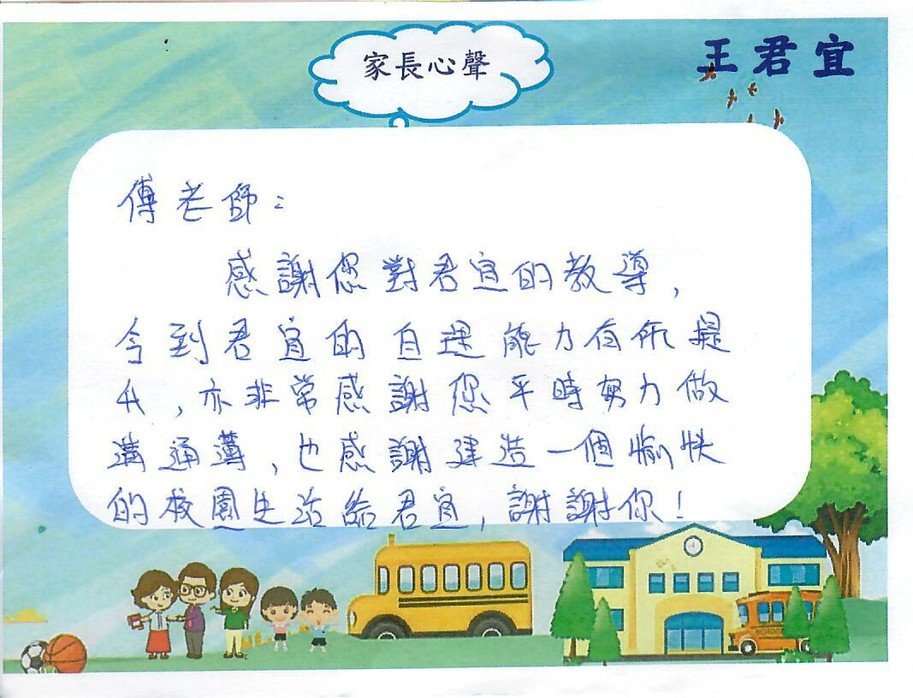 家長心聲
王君宜
傅老師：
感謝您對君宜的教導，
令到君宜的自理能力有所提
升，亦非常感謝您平時努力做
溝通薄，也感謝建造一個愉快
的校園生活給君宜，謝謝你！